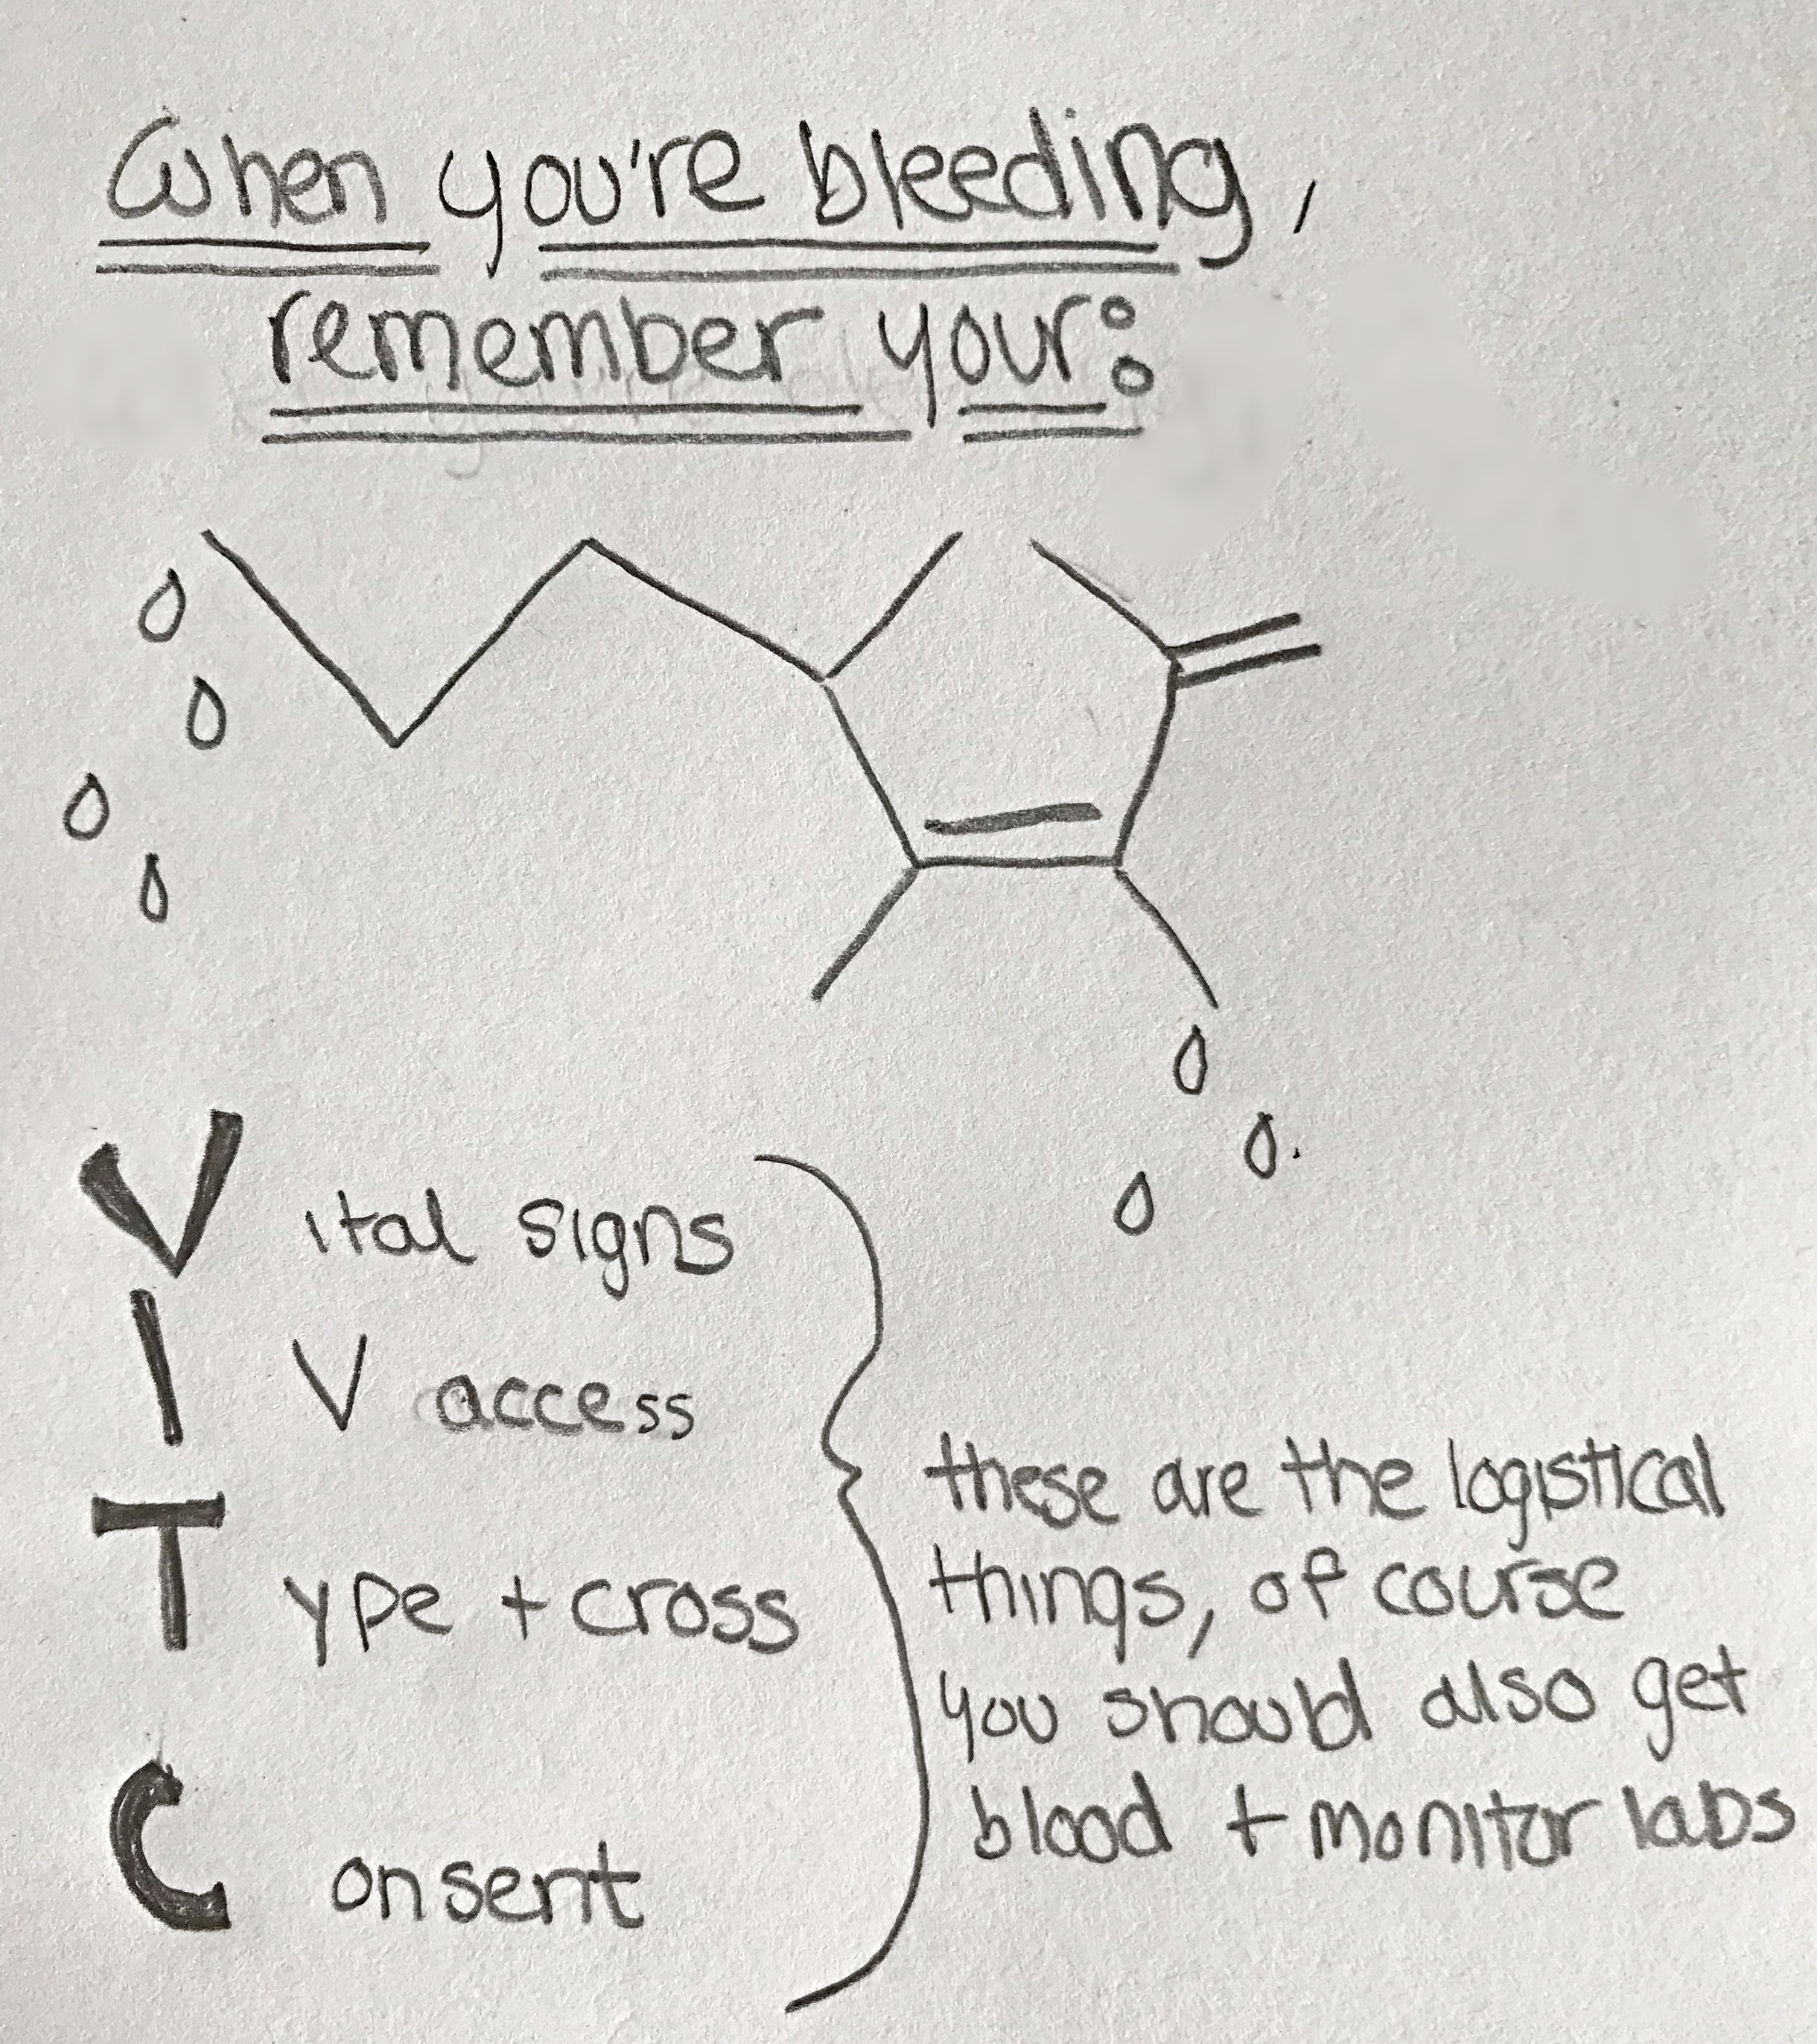 When you're bleeding,
remember your:
Vital signs
IV access
Type + cross
Consent
these are the logistical
things, of course
you should also get
blood + monitor labs